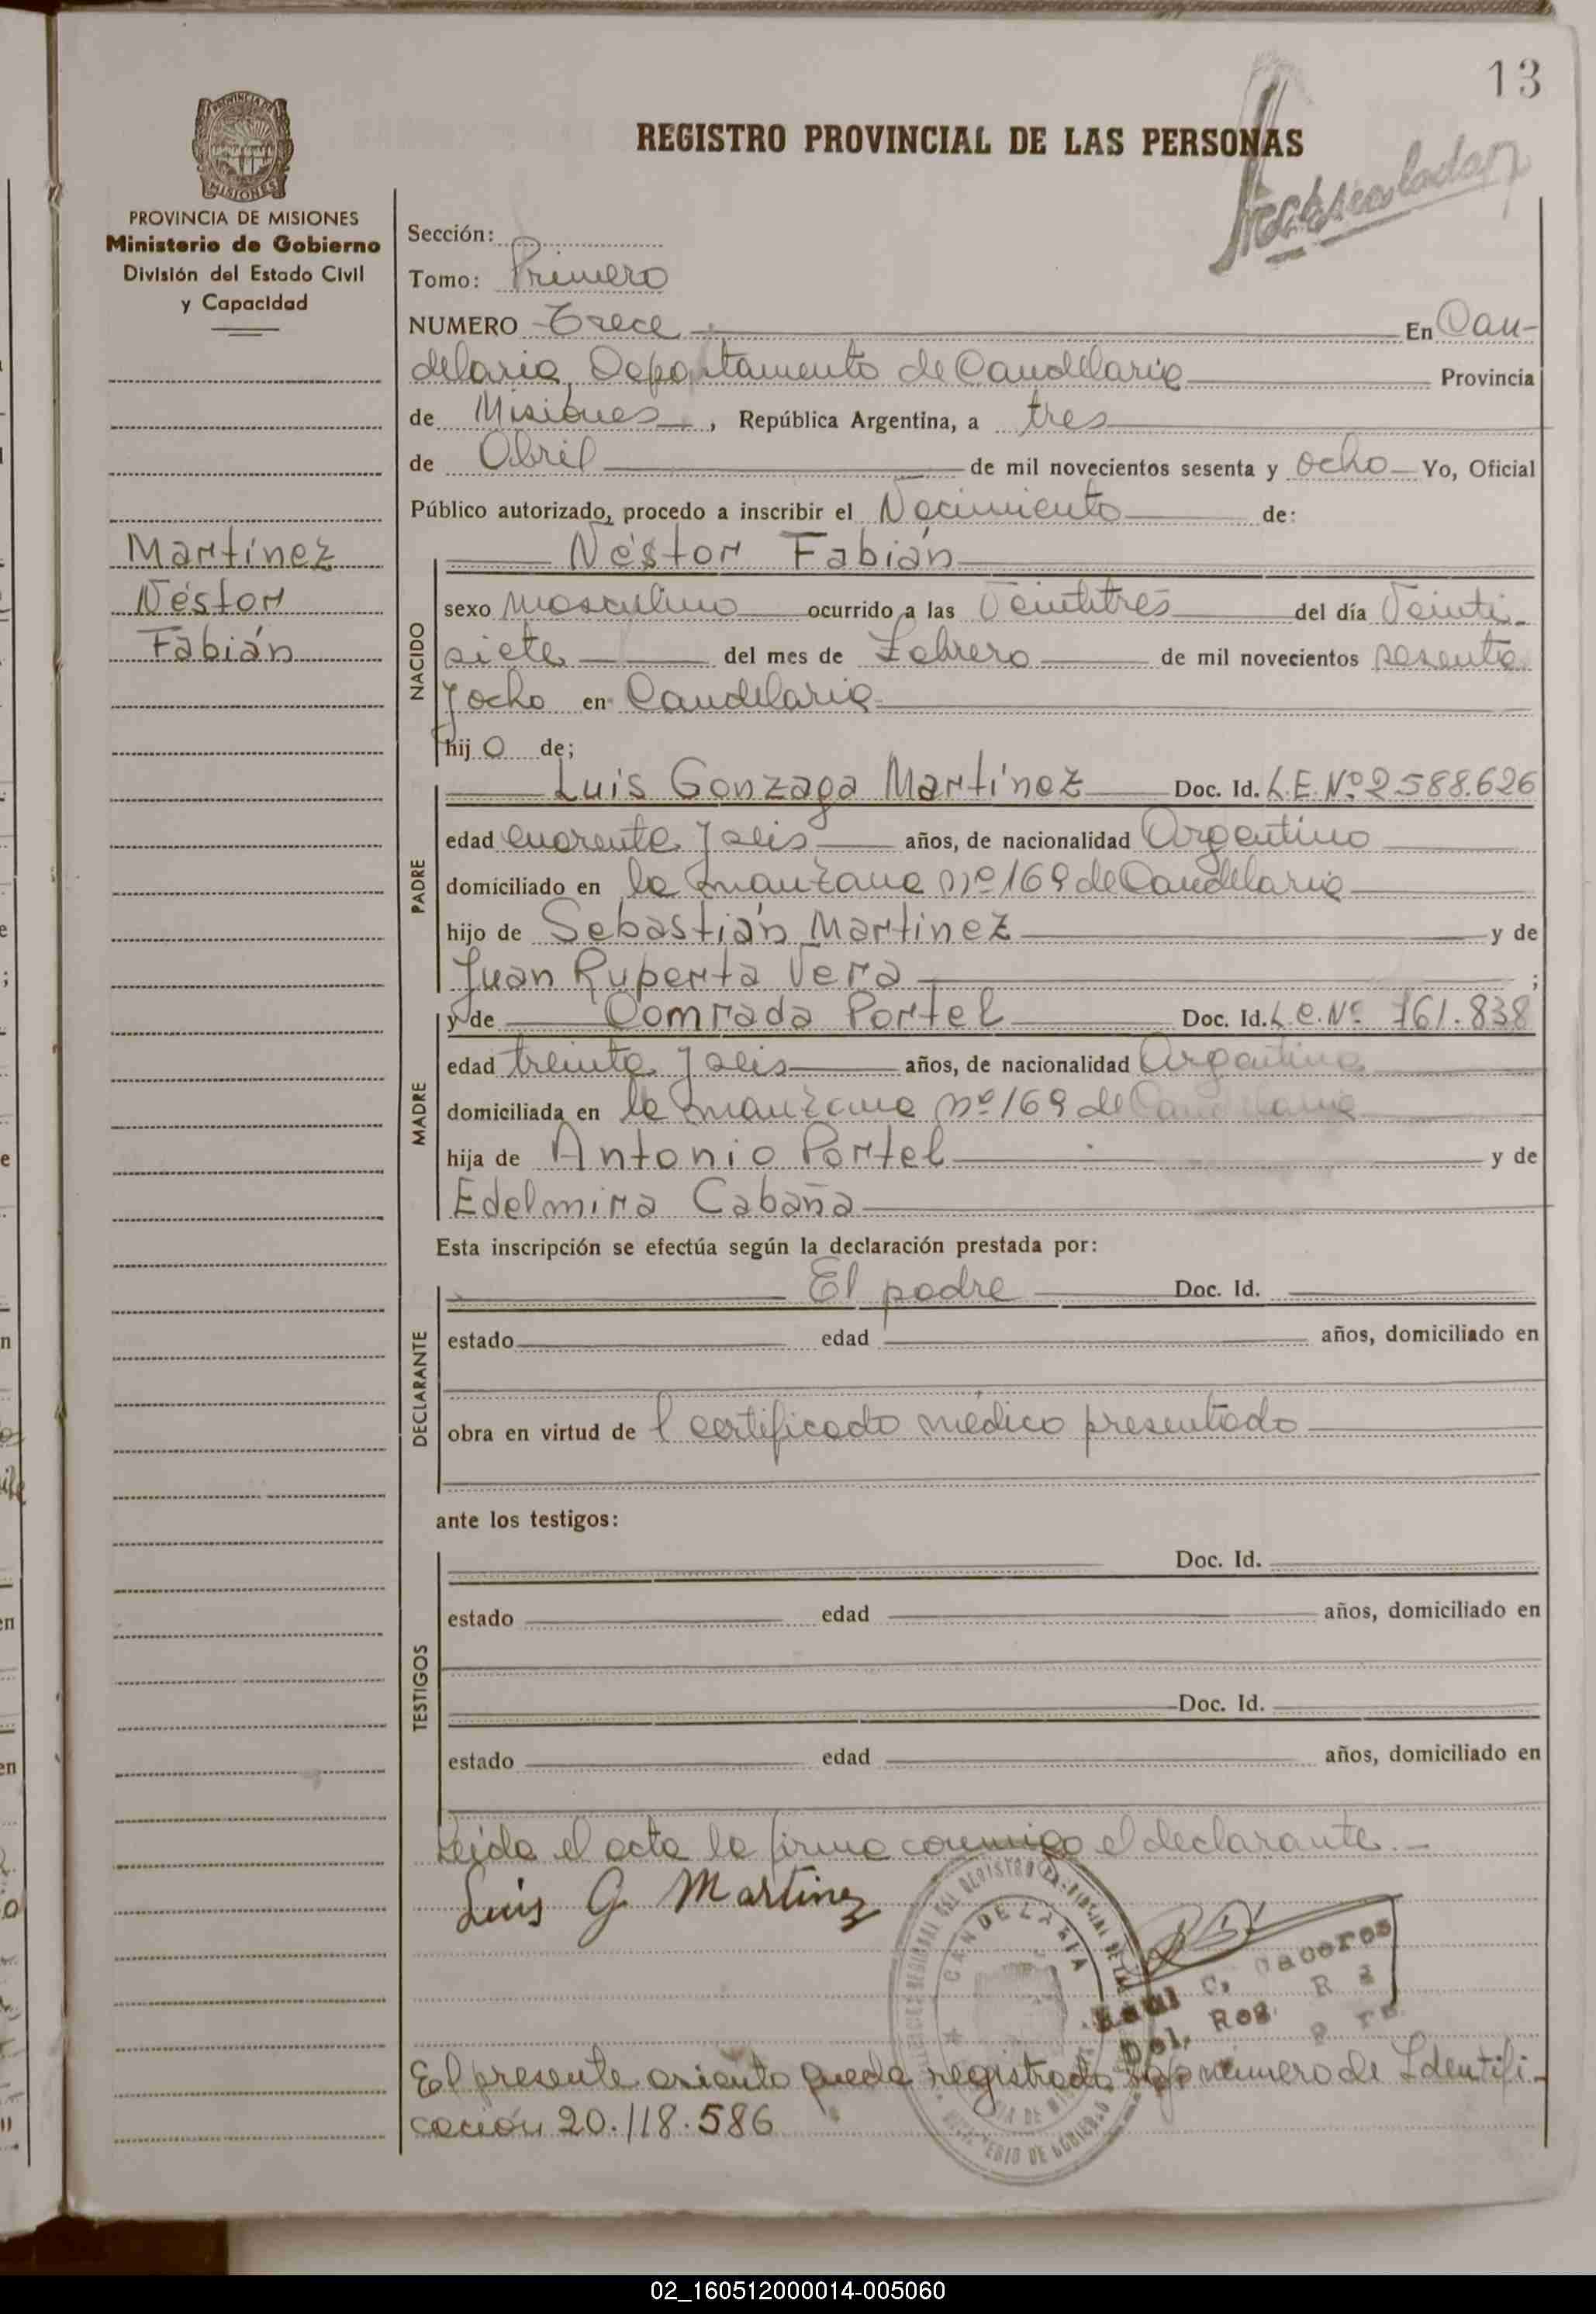 13
REGISTRO PROVINCIAL DE LAS PERSONAS
PROVINCIA DE MISIONES
Ministerio de Gobierno
División del Estado Civil
y Capacidad
Martínez
Néstor
Fabián
Sección:
Tomo: Primero
NUMERO Trece En Can-
delaria, Departamento de Candelaria Provincia
de Misiones, República Argentina, a tres
de Abril de mil novecientos sesenta y ocho Yo, Oficial
Público autorizado, procedo a inscribir el Nacimiento de:
NACIDO
Néstor Fabián
sexo masculino ocurrido a las Veintitrés del día Veinti-
siete del mes de Febrero de mil novecientos sesenta
y ocho en Candelaria
hijo de;
PADRE
Luis Gonzaga Martínez Doc. Id. L.E. Nº 2.588.626
edad cuarenta y seis años, de nacionalidad Argentino
domiciliado en la manzana nº 169 de Candelaria
hijo de Sebastián Martinez y de
Juan Ruperta Vera ;
MADRE
y de Comrada Portel Doc. Id. L.C. Nº 761.838
edad treinta y seis años, de nacionalidad Argentina
domiciliada en la manzana nº 169 de Candelaria
hija de Antonio Portel y de
Edelmira Cabaña
Esta inscripción se efectúa según la declaración prestada por:
DECLARANTE
El padre Doc. Id.
estado edad años, domiciliado en
obra en virtud de l certificado médico presentado
ante los testigos:
TESTIGOS
Doc. Id.
estado edad años, domiciliado en
Doc. Id.
estado edad años, domiciliado en
Leida el acta la firma conmigo el declarante.-
Luis G Martinez
CANDELARIA
C. Caceres
Del. Reg.
El presente asiento queda registrado bajo número de Identifi-
cación 20.118.586
02_160512000014-005060